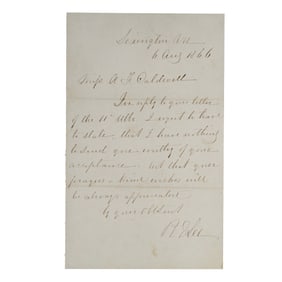 Lexington Va
6 Aug 1866
Miss A F Caldwell
In reply to your letter
of the Ulto. I regret to have
to state, that I have nothing
to send you worthy of your
acceptance. but that your
prayers & kind wishes will
be always appreciated
Yr your Obt Servt
R E Lee